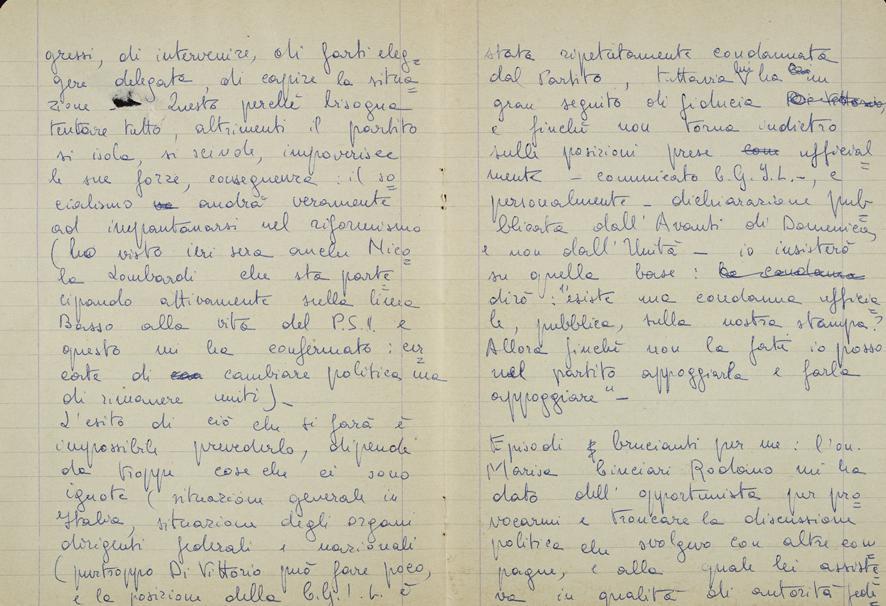 gressi, di intervenire, di farti eleg=
gere delegata, di capire la situa=
zione Questo perché bisogna
tentare tutto, altrimenti il partito
si isola, si scinde, impoverisce
le sue forze, conseguenza: il so=
cialismo andrà veramente
ad impantanarsi nel riformismo
(ho visto ieri sera anche Nico=
la Lombardi che sta parte=
cipando attivamente sulla linea
Basso alla vita del P.S.I. e
questo mi ha confermato: cer=
cate di cambiare politica ma
di rimanere uniti)_
L'esito di ciò che si farà è
impossibile prevederlo, dipende
da troppe cose che ci sono
ignote (situazione generale in
Italia, situazione degli organi
dirigenti federali e nazionali
(purtroppo Di Vittorio può fare poco,
e la posizione della C.G.I.L. è
stata ripetutamente condannata
dal Partito, tuttavia lui ha un
gran seguito di fiducia Di Vittorio,
e finché non torna indietro
sulle posizioni prese come ufficial=
mente - comunicato C.G.I.L. -, e
personalmente - dichiarazione pub=
blicata dall'Avanti di Domenica,
e non dall'Unità - io insisterò
su quella base: la condanna
dirò: "esiste una condanna ufficia=
le, pubblica, sulla nostra stampa?
Allora finché non la fate io posso
nel partito appoggiarla e farla
appoggiare" -
Episodi brucianti per me: l'on.
Marisa Cinciari Rodano mi ha
dato dell'opportunista per pro=
vocarmi e troncare la discussione
politica che svolgevo con altre com=
pagne, e alla quale lei assiste=
va in qualità di autorità fede=